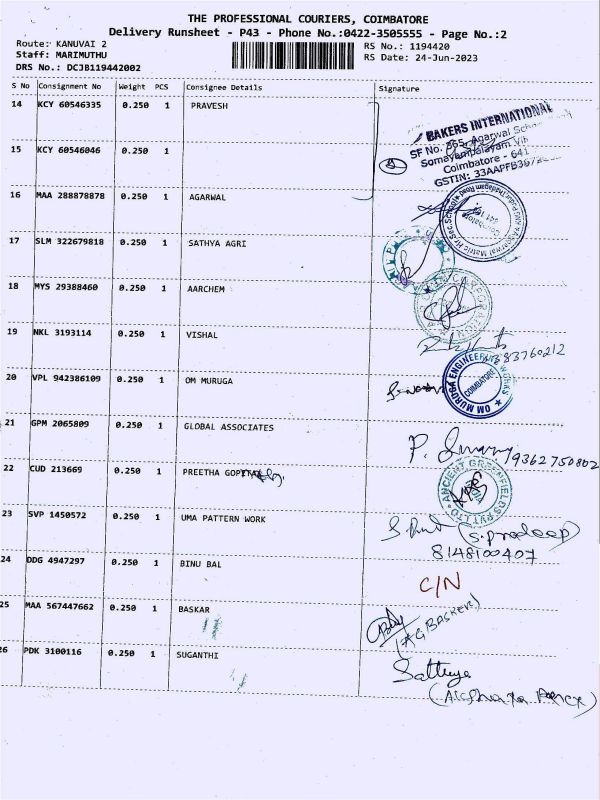 THE PROFESSIONAL COURIERS, COIMBATORE
Delivery Runsheet - P43 - Phone No.:0422-3505555 - Page No.:2
Route: KANUVAI 2
Staff: MARIMUTHU
DRS No.: DCJB119442002
RS No.: 1194420
RS Date: 24-Jun-2023
S No Consignment No Weight PCS Consignee Details Signature
14 KCY 60546335 0.250 1 PRAVESH
BAKERS INTERNATIONAL
SF No. 365, Agarwal
Somayampalayam
Coimbatore - 641
GSTIN: 33AAPFB
15 KCY 60546046 0.250 1
16 MAA 288878878 0.250 1 AGARWAL
17 SLM 322679818 0.250 1 SATHYA AGRI
18 MYS 29388460 0.250 1 AARCHEM
19 NKL 3193114 0.250 1 VISHAL
20 VPL 942386109 0.250 1 OM MURUGA
OM MURUGA ENGINEERING WORKS
COIMBATORE
21 GPM 2065809 0.250 1 GLOBAL ASSOCIATES
9362750802
22 CUD 213669 0.250 1 PREETHA
ANCIENT GREENFIELDS PVT LTD
23 SVP 1450572 0.250 1 UMA PATTERN WORK
(S.pradeep)
8148100407
24 DDG 4947297 0.250 1 BINU BAL
C/N
25 MAA 567447662 0.250 1 BASKAR
(A G BASKER)
26 PDK 3100116 0.250 1 SUGANTHI
Sathya